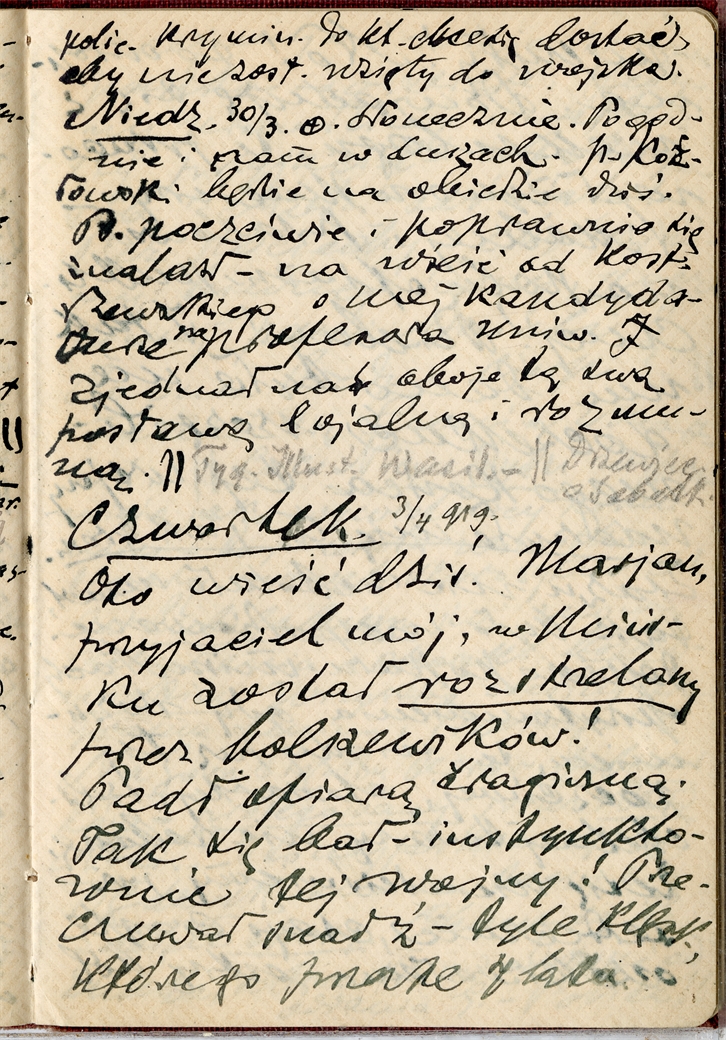 polic. Krymin. do kt. chce się dostać,
aby nie zost. wzięty do wojska.
Niedz. 30/3. Słonecznie. Pogod-
nie i nam w duszach. p. Koz-
łowski będzie na obiedzie dziś.
B. poczciwie i poprawnie się
znalazł – na wieść od Kost-
rzewskiego o mej kandyda-
turze na profesora uniw.
zjednał nas oboje tą swą
postawą lojalną i rozum-
ną. || Tyg. Illust. Wasil. – ||
Czwartek. 3/4 919.
Oto wieść dziś. Marjan,
przyjaciel mój, w Miń-
sku został rozstrzelany
przez bolszewików!
Padł ofiarą tragiczną.
Tak się bał – instynkto-
wnie tej wojny! Prze-
czuwał snadź – tyle klęsk,
którego przeszłe 4 lata